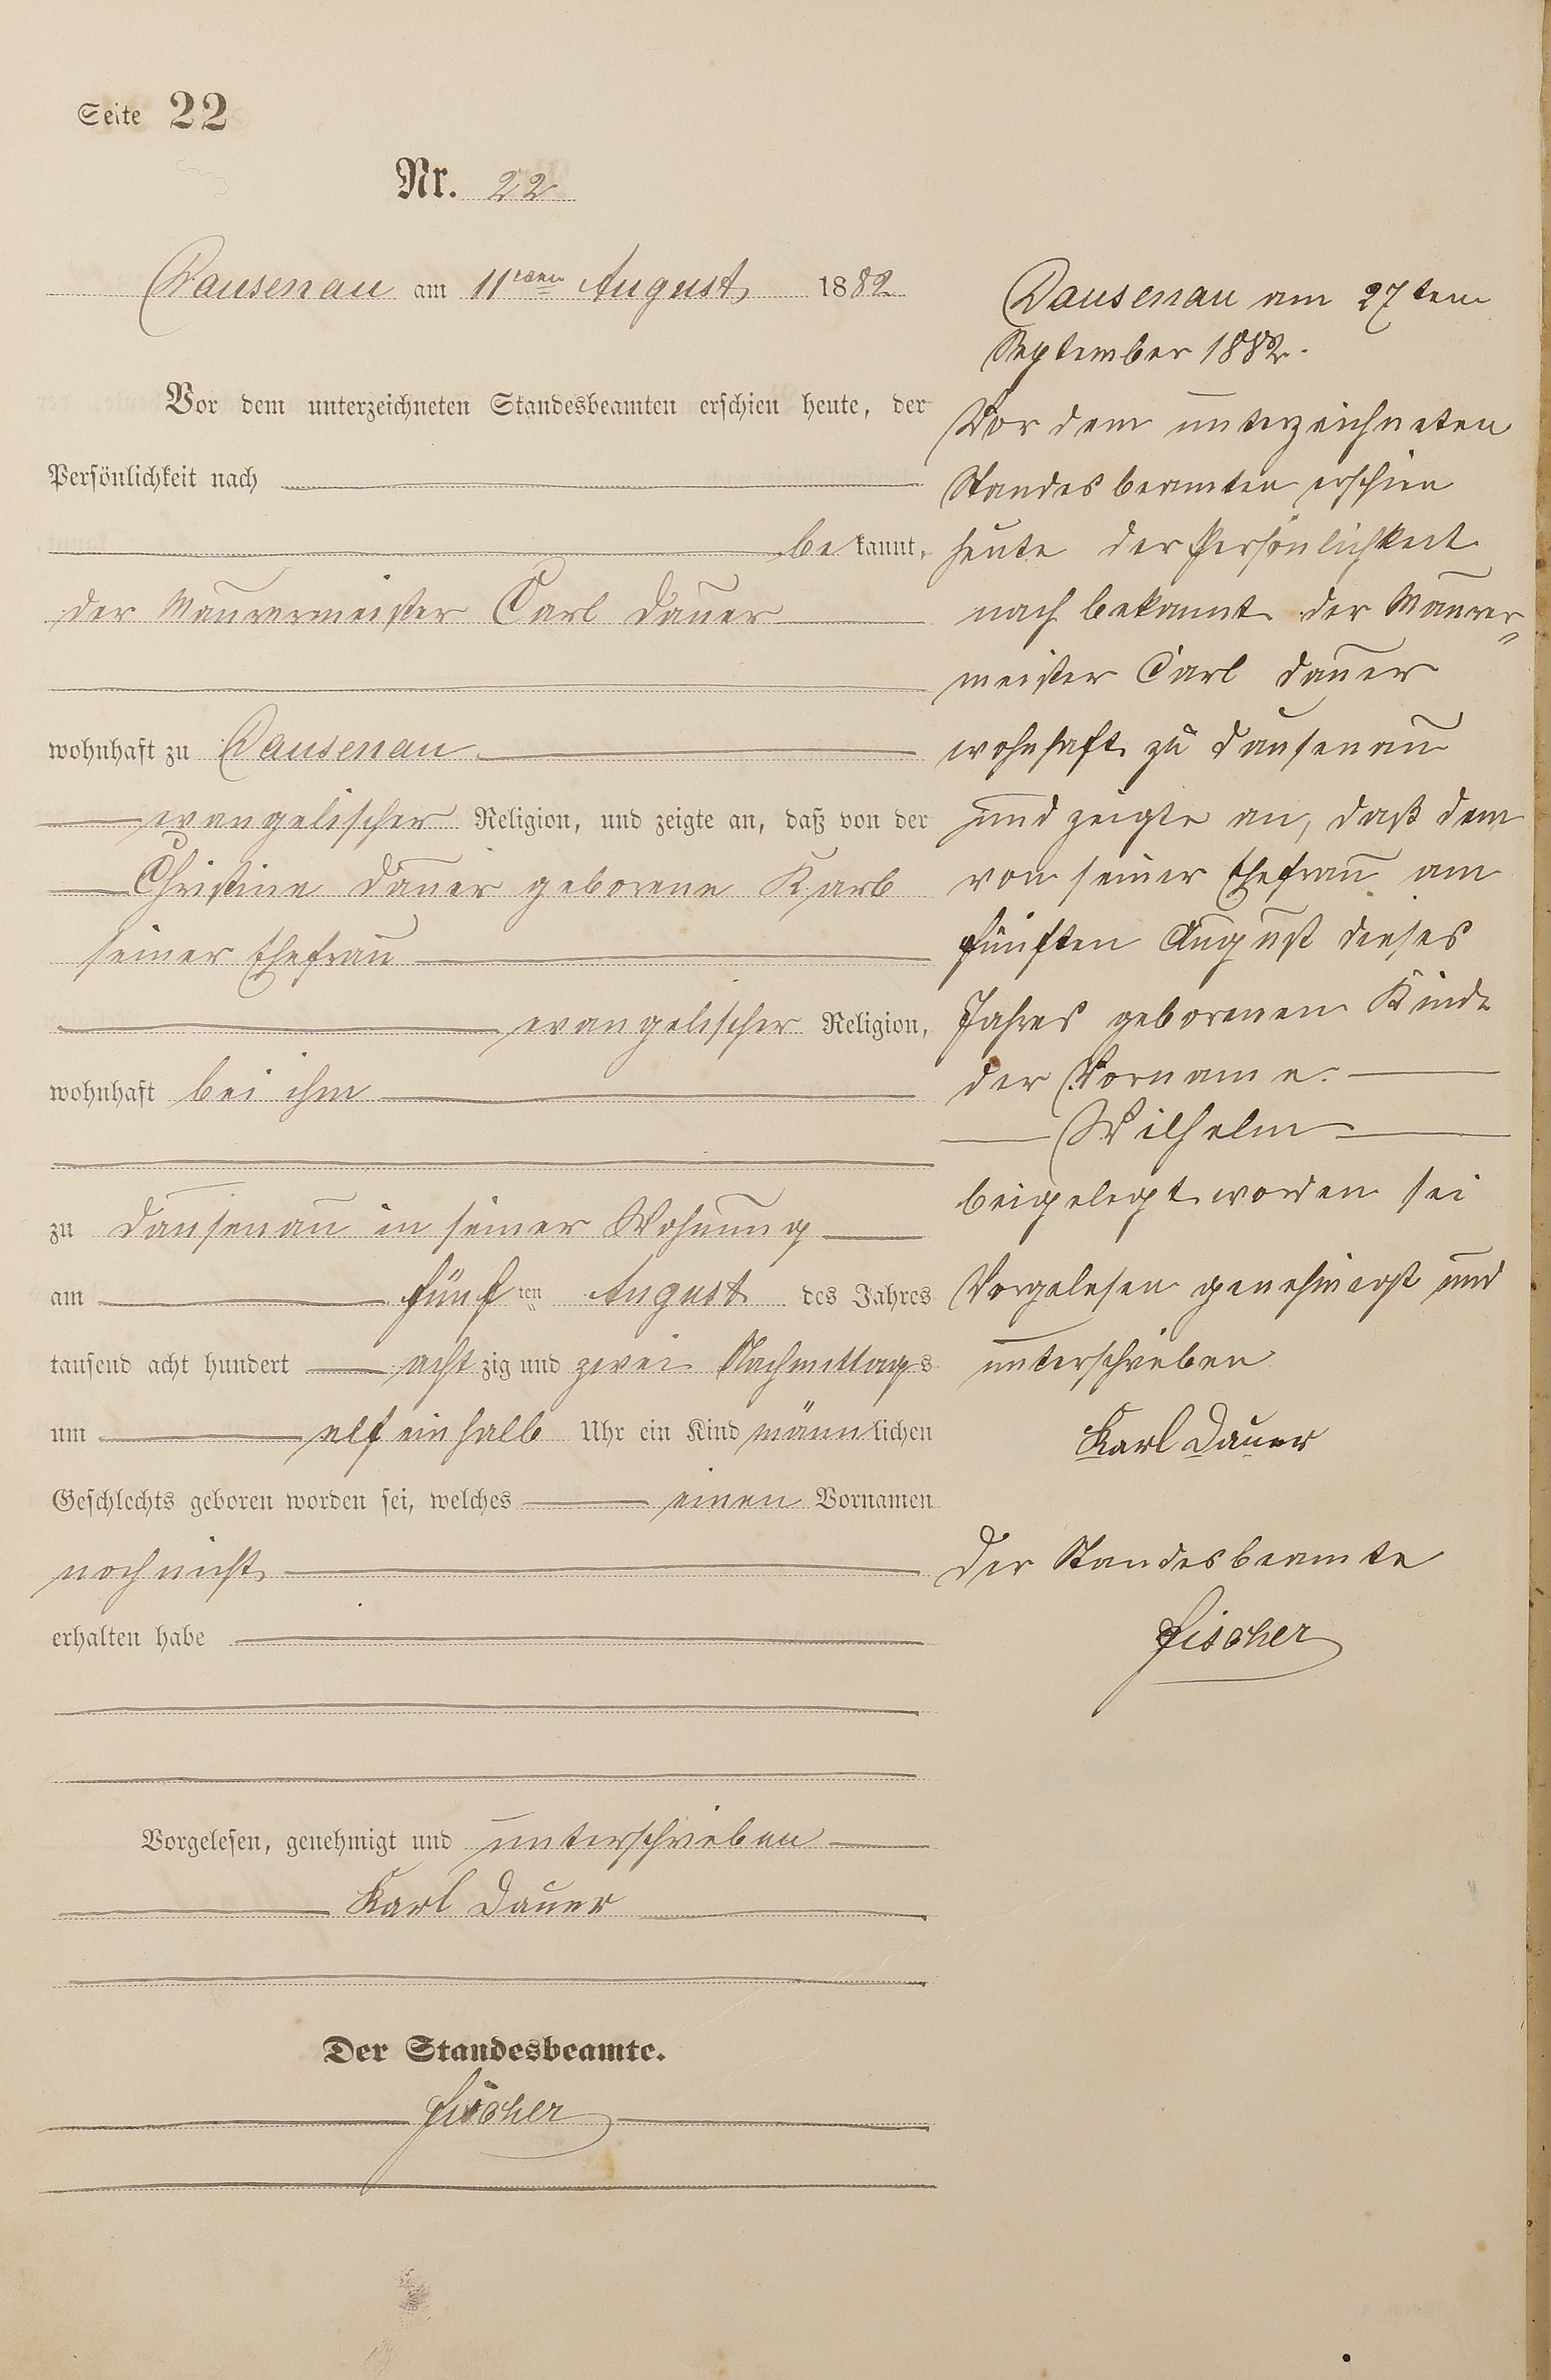 Seite 22
Nr. 22
Dausenau am 11ten August 1882
Vor dem unterzeichneten Standesbeamten erschien heute, der
Persönlichkeit nach
bekannt,
der Maurermeister Carl Dauer
wohnhaft zu Dausenau
evangelischer Religion, und zeigte an, daß von der
Christine Dauer geborene Karb
seiner Ehefrau
evangelischer Religion,
wohnhaft bei ihm
zu Dausenau in seiner Wohnung
am fünften August des Jahres
tausend acht hundert achtzig und zwei Nachmittags
um elf einhalb Uhr ein Kind männlichen
Geschlechts geboren worden sei, welches einen Vornamen
noch nicht
erhalten habe
Vorgelesen, genehmigt und unterschrieben
Karl Dauer
Der Standesbeamte.
Fischer
Dausenau am 27ten
September 1882.
Vor dem unterzeichneten
Standesbeamten erschien
heute der Persönlichkeit
nach bekannt der Maurer=
meister Carl Dauer
wohnhaft zu Dausenau
und zeigte an, daß dem
von seiner Ehefrau am
fünften August dieses
Jahres geborenen Kinde
der Vorname
Wilhelm
beigelegt worden sei
Vorgelesen genehmigt und
unterschrieben
Karl Dauer
Der Standesbeamte
Fischer